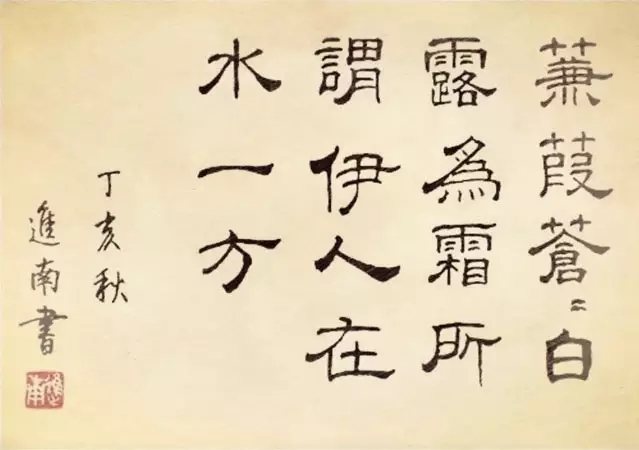 蒹葭蒼〻白
露為霜所
謂伊人在
水一方
丁亥秋
進南書